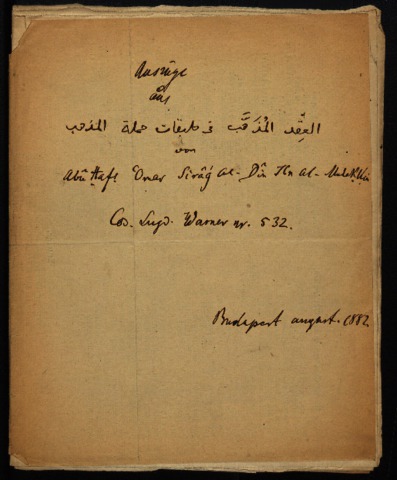 Auszüge
aus
العِقْد المُذَهَّب فى طبقات حملة المذهب
von
Abû Ḥafṣ Omar Sirâǵ al-Dîn Ibn al-Mulaḳḳin
Cod. Lugd. Warner nr. 532.
Budapest august. 1882